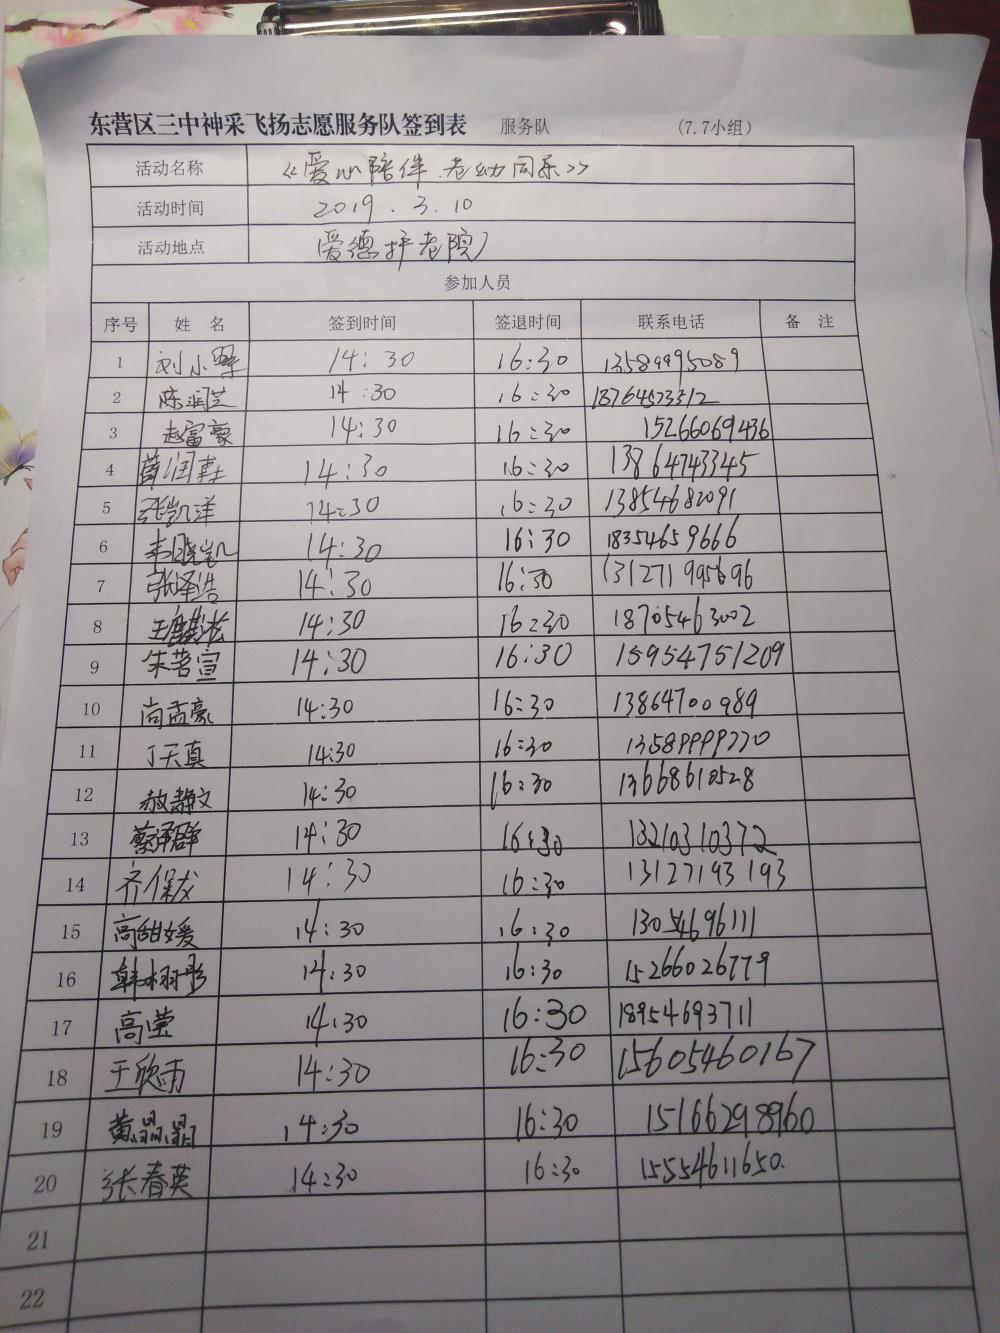 东营区三中神采飞扬志愿服务队签到表 服务队 (7.7小组)
活动名称 《爱心陪伴.老幼同乐》
活动时间 2019.3.10
活动地点 爱德护老院
参加人员
序号 姓 名 签到时间 签退时间 联系电话 备 注
1 刘小翠 14:30 16:30 13589995089
2 陈润芝 14:30 16:30 18764573312
3 赵富豪 14:30 16:30 15266069436
4 14:30 16:30 13864743345
5 张凯洋 14:30 16:30 13854682091
6 韦晓凯 14:30 16:30 18354659666
7 张泽浩 14:30 16:30
8 14:30 16:30 18705463002
9 朱茗宣 14:30 16:30 15954751209
10 尚孟豪 14:30 16:30 13864700989
11 丁天真 14:30 16:30 13589999770
12 赦静文 14:30 16:30 13668618528
13 蔡泽群 14:30 16:30 13210310372
14 齐保友 14:30 16:30 13127193193
15 高甜媛 14:30 16:30
16 韩栩彤 14:30 16:30 15266026779
17 高莹 14:30 16:30 18954693711
18 于欣雨 14:30 16:30 15605460167
19 黄晶晶 14:30 16:30 15166298960
20 张春英 14:30 16:30 15554611650.
21
22